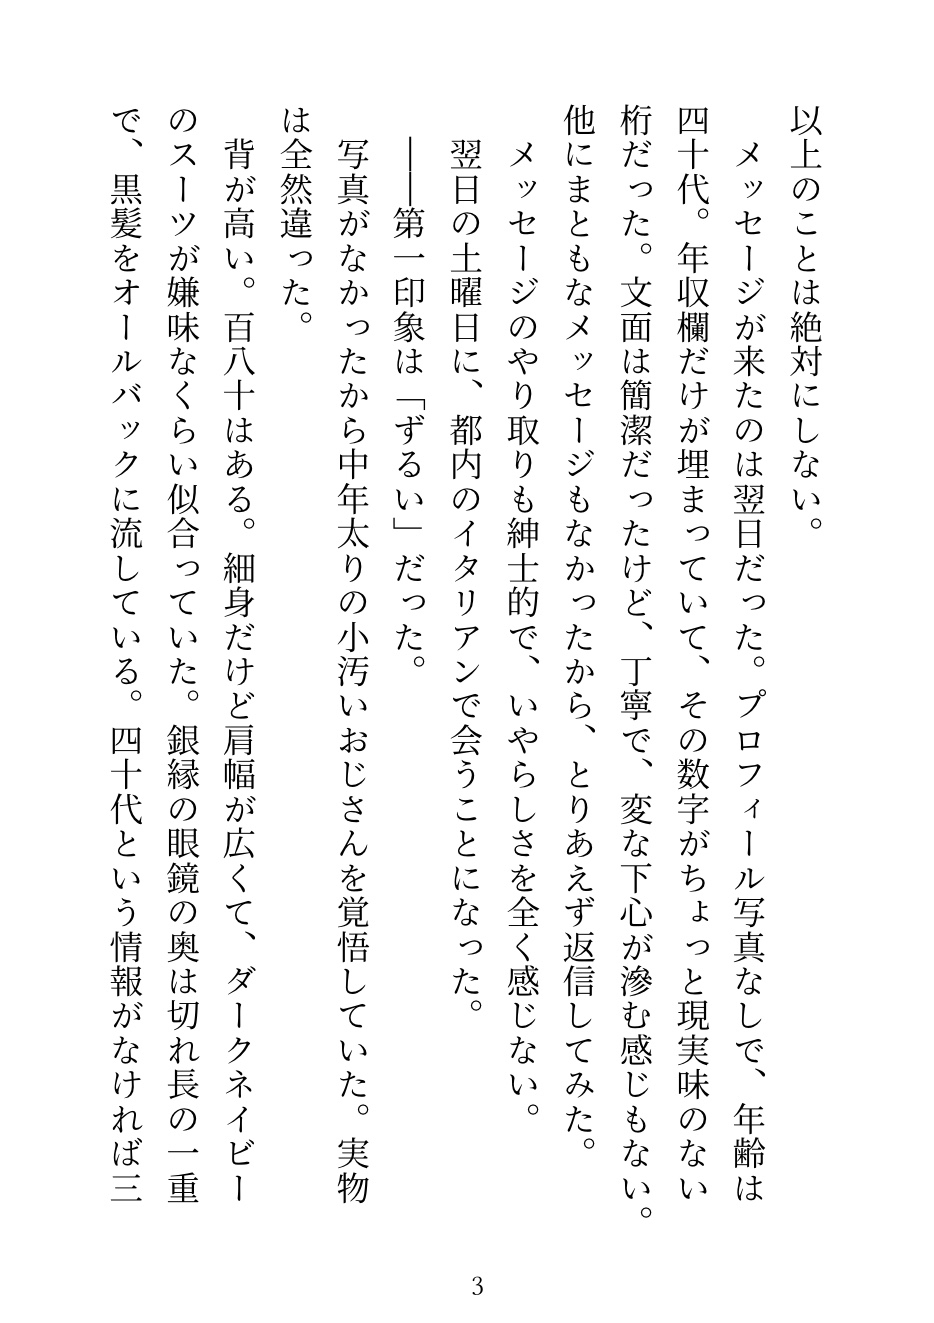 以上のことは絶対にしない。
　メッセージが来たのは翌日だった。プロフィール写真なしで、年齢は
四十代。年収欄だけが埋まっていて、その数字がちょっと現実味のない
桁だった。文面は簡潔だったけど、丁寧で、変な下心が滲む感じもない。
他にまともなメッセージもなかったから、とりあえず返信してみた。
　メッセージのやり取りも紳士的で、いやらしさを全く感じない。
　翌日の土曜日に、都内のイタリアンで会うことになった。
　――第一印象は「ずるい」だった。
　写真がなかったから中年太りの小汚いおじさんを覚悟していた。実物
は全然違った。
　背が高い。百八十はある。細身だけど肩幅が広くて、ダークネイビー
のスーツが嫌味なくらい似合っていた。銀縁の眼鏡の奥は切れ長の一重
で、黒髪をオールバックに流している。四十代という情報がなければ三
3